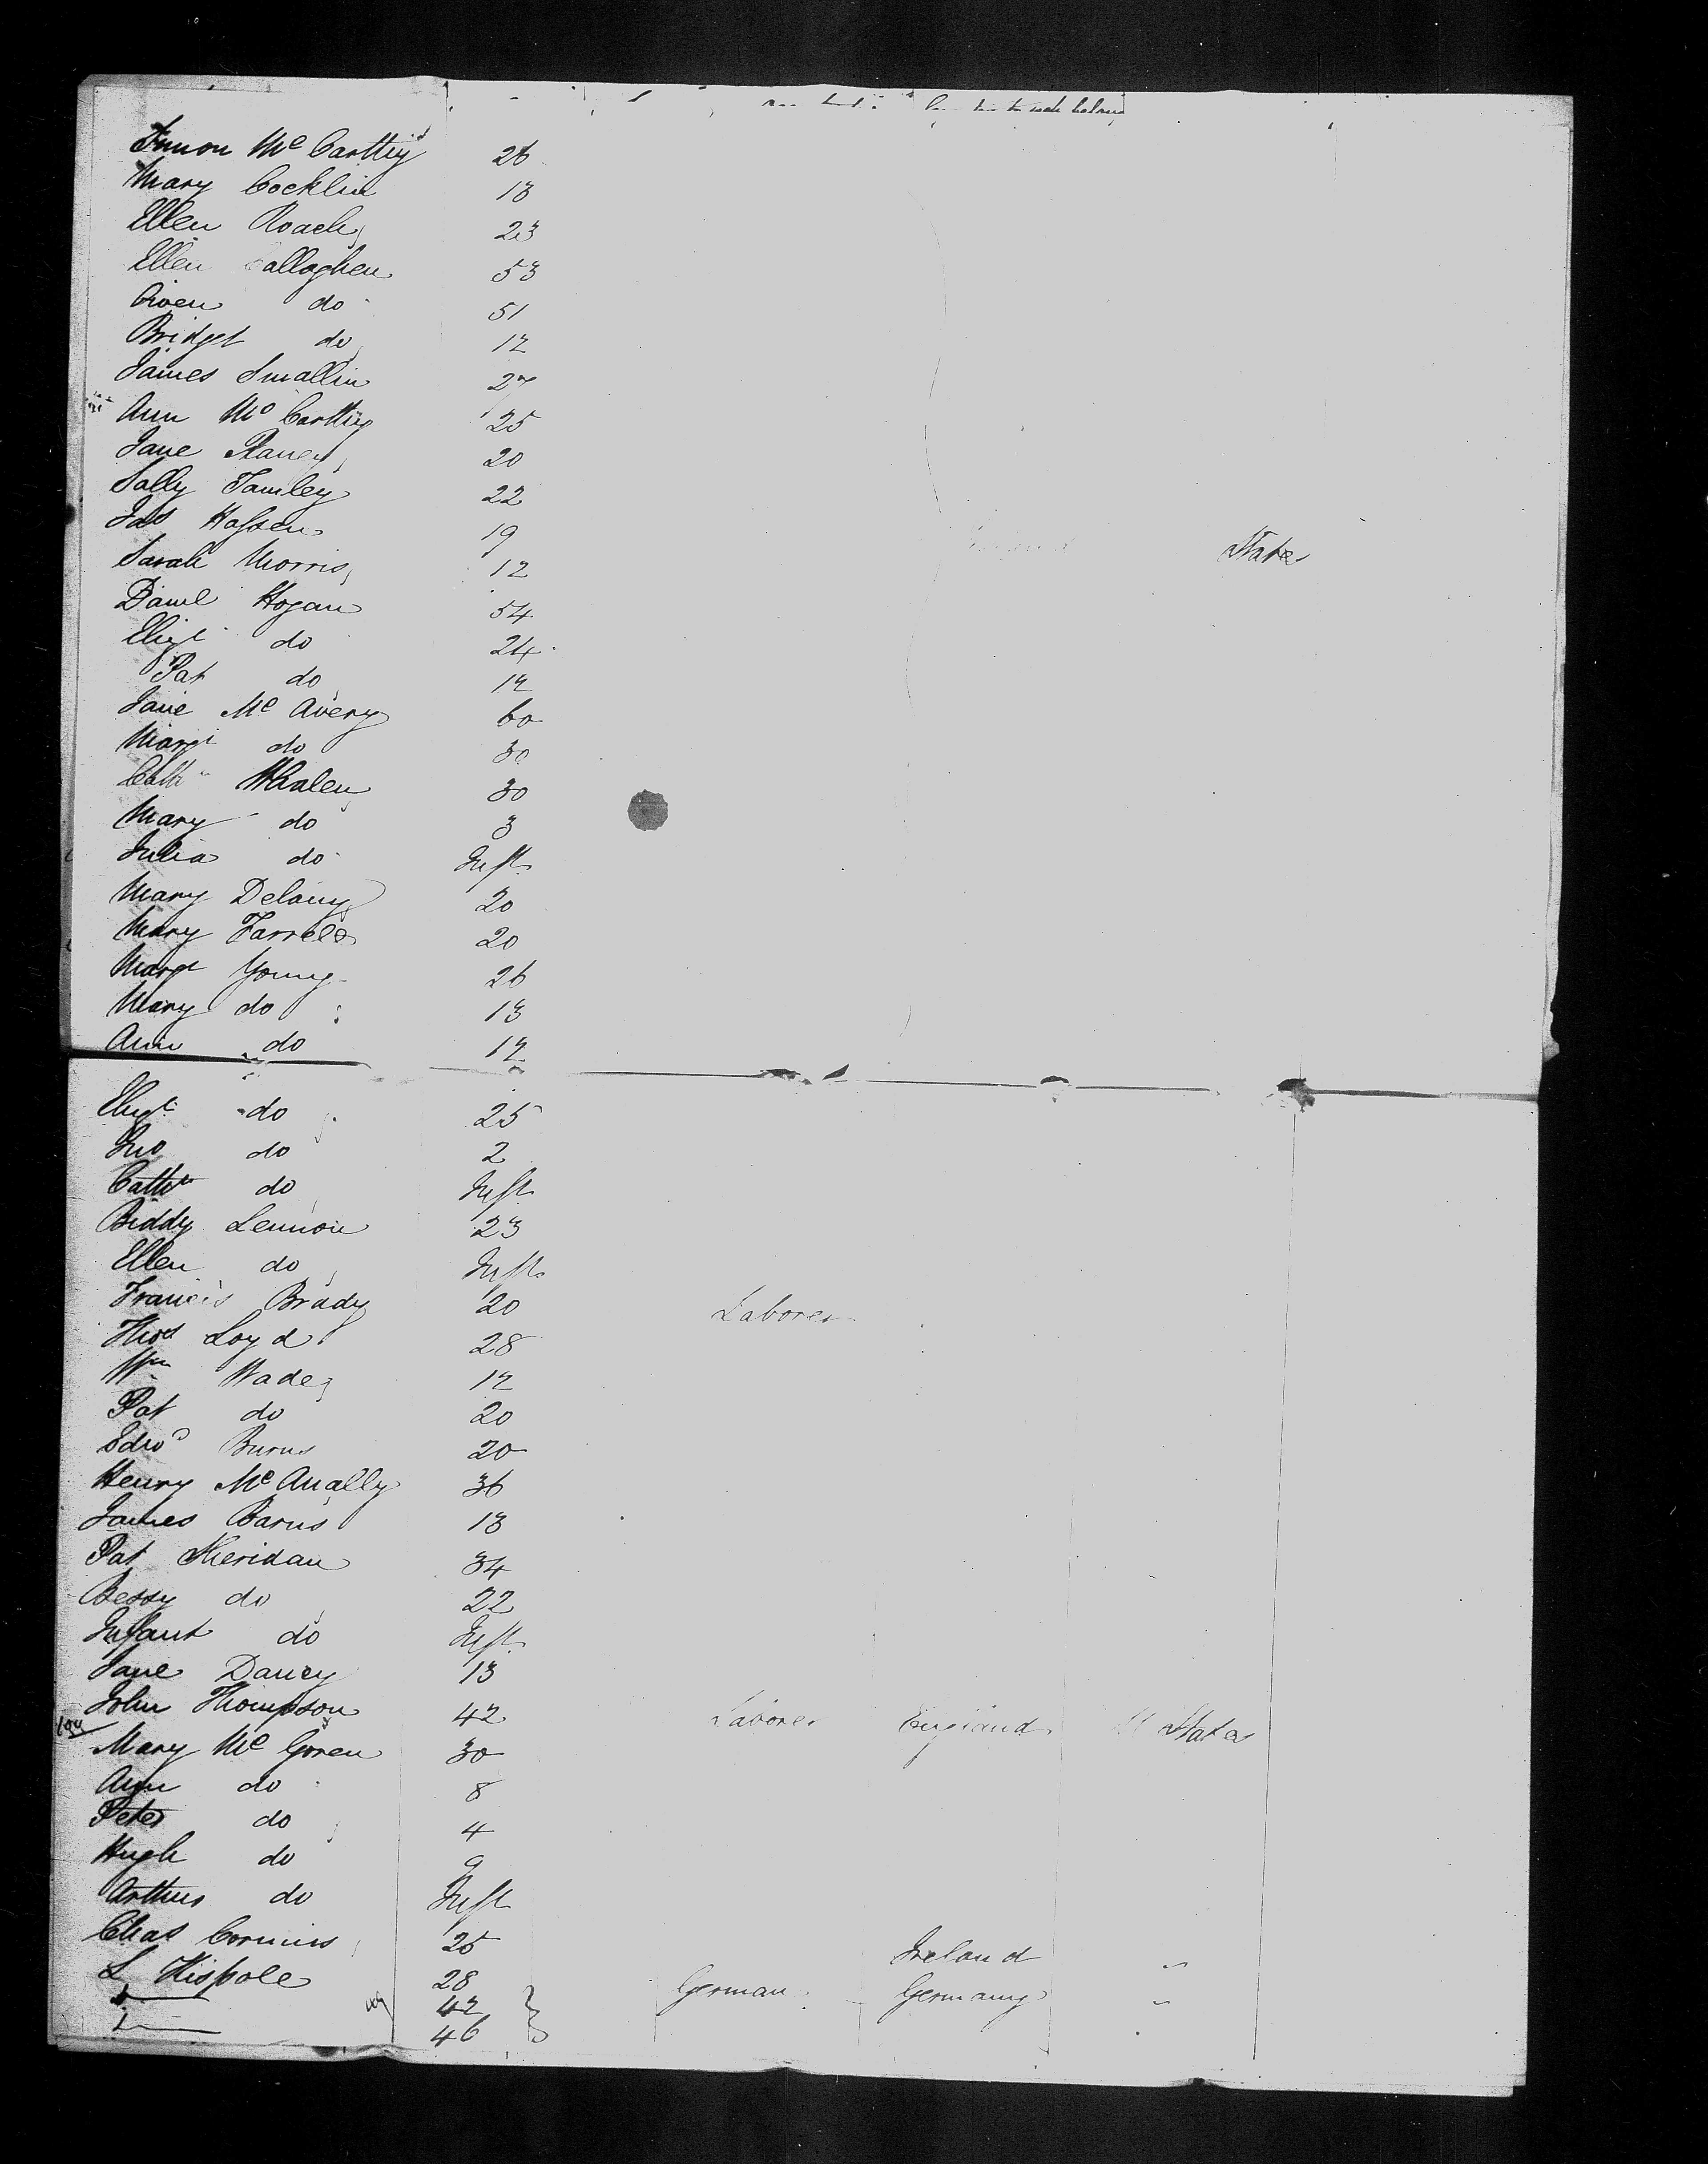 to which belong
Simon Mc Carthy 26
Mary Cocklin 18
Ellen Roach 23
Ellen Callaghen 53
Owen do 51
Bridget do 12
James Smallin 27
Ann Mc Carthy 25
Jane 20
Sally Tamley 22
Jas Hassen 19 States
Sarah Morris 12
Danl Hogan 54
Elizt do 24
Pat do 12
Jane Mc Avery 60
Margt do 30
Cathn Whalen 30
Mary do 3
Julia do Inft
Mary Delany 20
Mary Farrele 20
Margt Young 26
Mary do 13
Ann do 12
Elizt do 25
Jno do 2
Cathn do Inft
Biddy Lennon 23
Ellen do Inft
Francis Brady 20 Laborer
Thos Loyd 28
Wm Wade 12
Pat do 20
Edwd Burns 20
Henry Mc Anally 36
James Barns 18
Pat Sheridan 34
Bessy do 22
Infant do Inft
Jane Dancy 13
John Thompson 42 Laborer England U States
Mary Mc Goren 30
Ann do 8
Peter do 4
Hugh do 9
Arthur do Inft
Chas 25 Ireland "
L Hispole 28 German Germany "
42
46